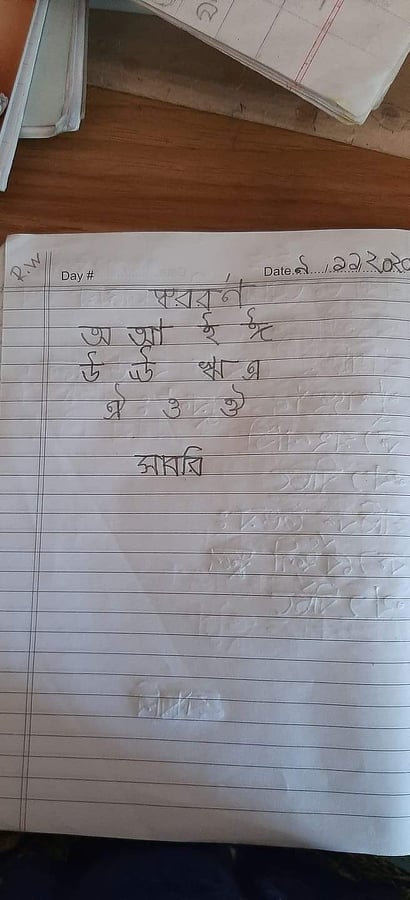 P.W
Day #
Date. ৯ / ১১/২০২০
স্বরবর্ণ
অ আ ই ঈ
উ ঊ ঋ এ
ঐ ও ঔ
সাবরি